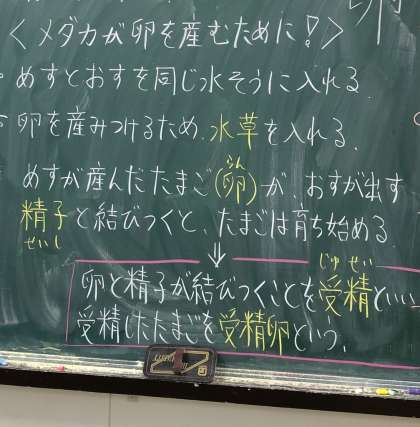 <メダカが卵を産むために!>
・めすとおすを同じ水そうに入れる
卵を産みつけるため、水草を入れる.
らん
めすが産んだたまご(卵)が、おすが出す
精子と結びつくと、たまごは育ち始める
せいし
⇓
じゅせい
卵と精子が結びつくことを受精といい
受精したたまごを受精卵という.